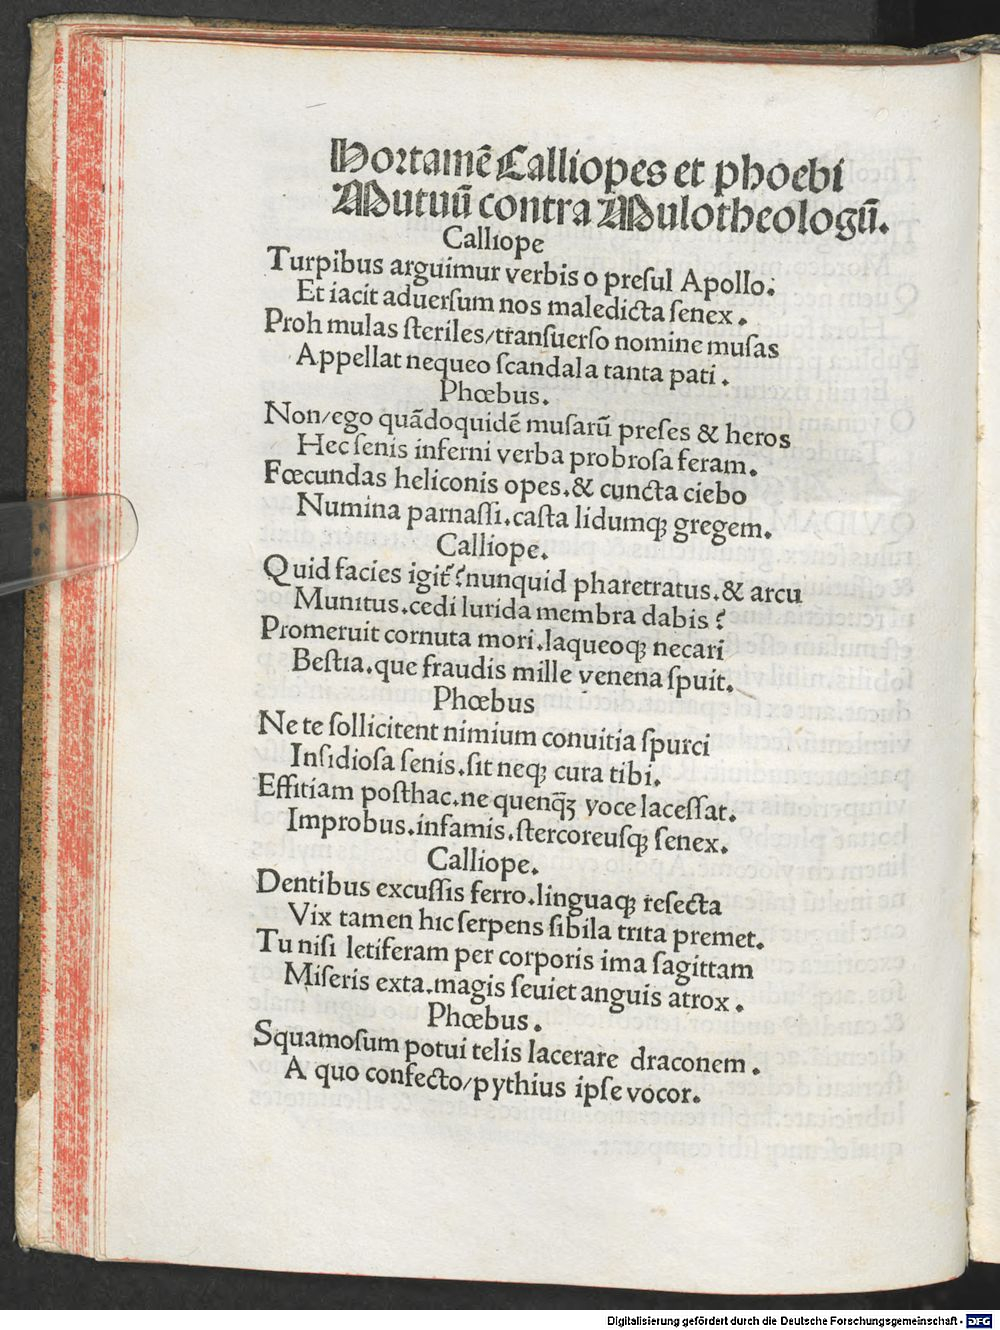 Hortamē Calliopes et phoebi
Mutuū contra Mulotheologū.
Calliope
Turpibus arguimur verbis o preſul Apollo.
Et iacit aduerſum nos maledicta ſenex.
Proh mulas ſteriles/tranſuerſo nomine muſas
Appellat nequeo ſcandala tanta pati.
Phœbus.
Non/ego quādoquidē muſarū preſes & heros
Hec ſenis inferni verba probroſa feram.
Fœcundas heliconis opes.& cuncta ciebo
Numina parnaſſi.caſta lidumqꝫ gregem.
Calliope.
Quid facies igit̄?nunquid pharetratus.& arcu
Munitus.cedi lurida membra dabis?
Promeruit cornuta mori.laqueoqꝫ necari
Beſtia.que fraudis mille venena ſpuit.
Phœbus
Ne te ſollicitent nimium conuitia ſpurci
Inſidioſa ſenis.ſit neqꝫ cura tibi.
Effitiam poſthac.ne quenq̄ꝫ voce laceſſat.
Improbus.infamis.ſtercoreuſqꝫ ſenex.
Calliope.
Dentibus excuſſis ferro.linguaqꝫ reſecta
Vix tamen hic ſerpens ſibila trita premet.
Tu niſi letiferam per corporis ima ſagittam
Miſeris exta.magis ſeuiet anguis atrox.
Phœbus.
Squamoſum potui telis lacerare draconem.
A quo confecto/pythius ipſe vocor.
Digitalisierung gefördert durch die Deutsche Forschungsgemeinschaft - DFG